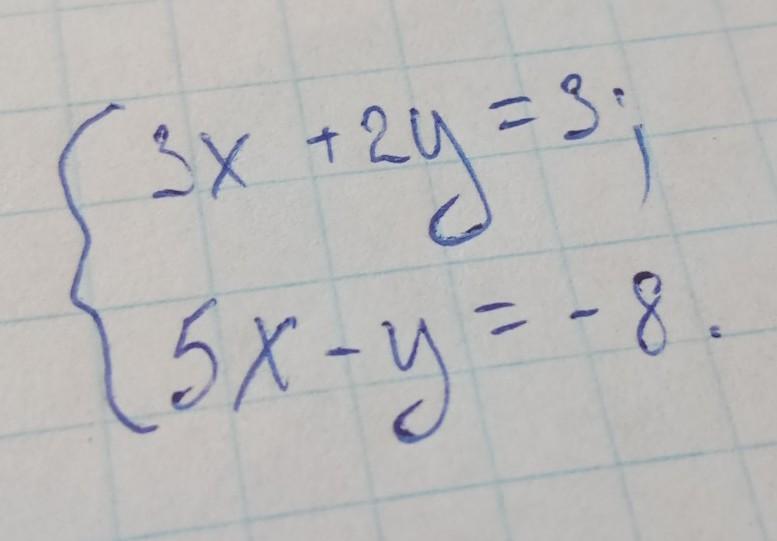 3x + 2y = 3;
5x - y = -8.